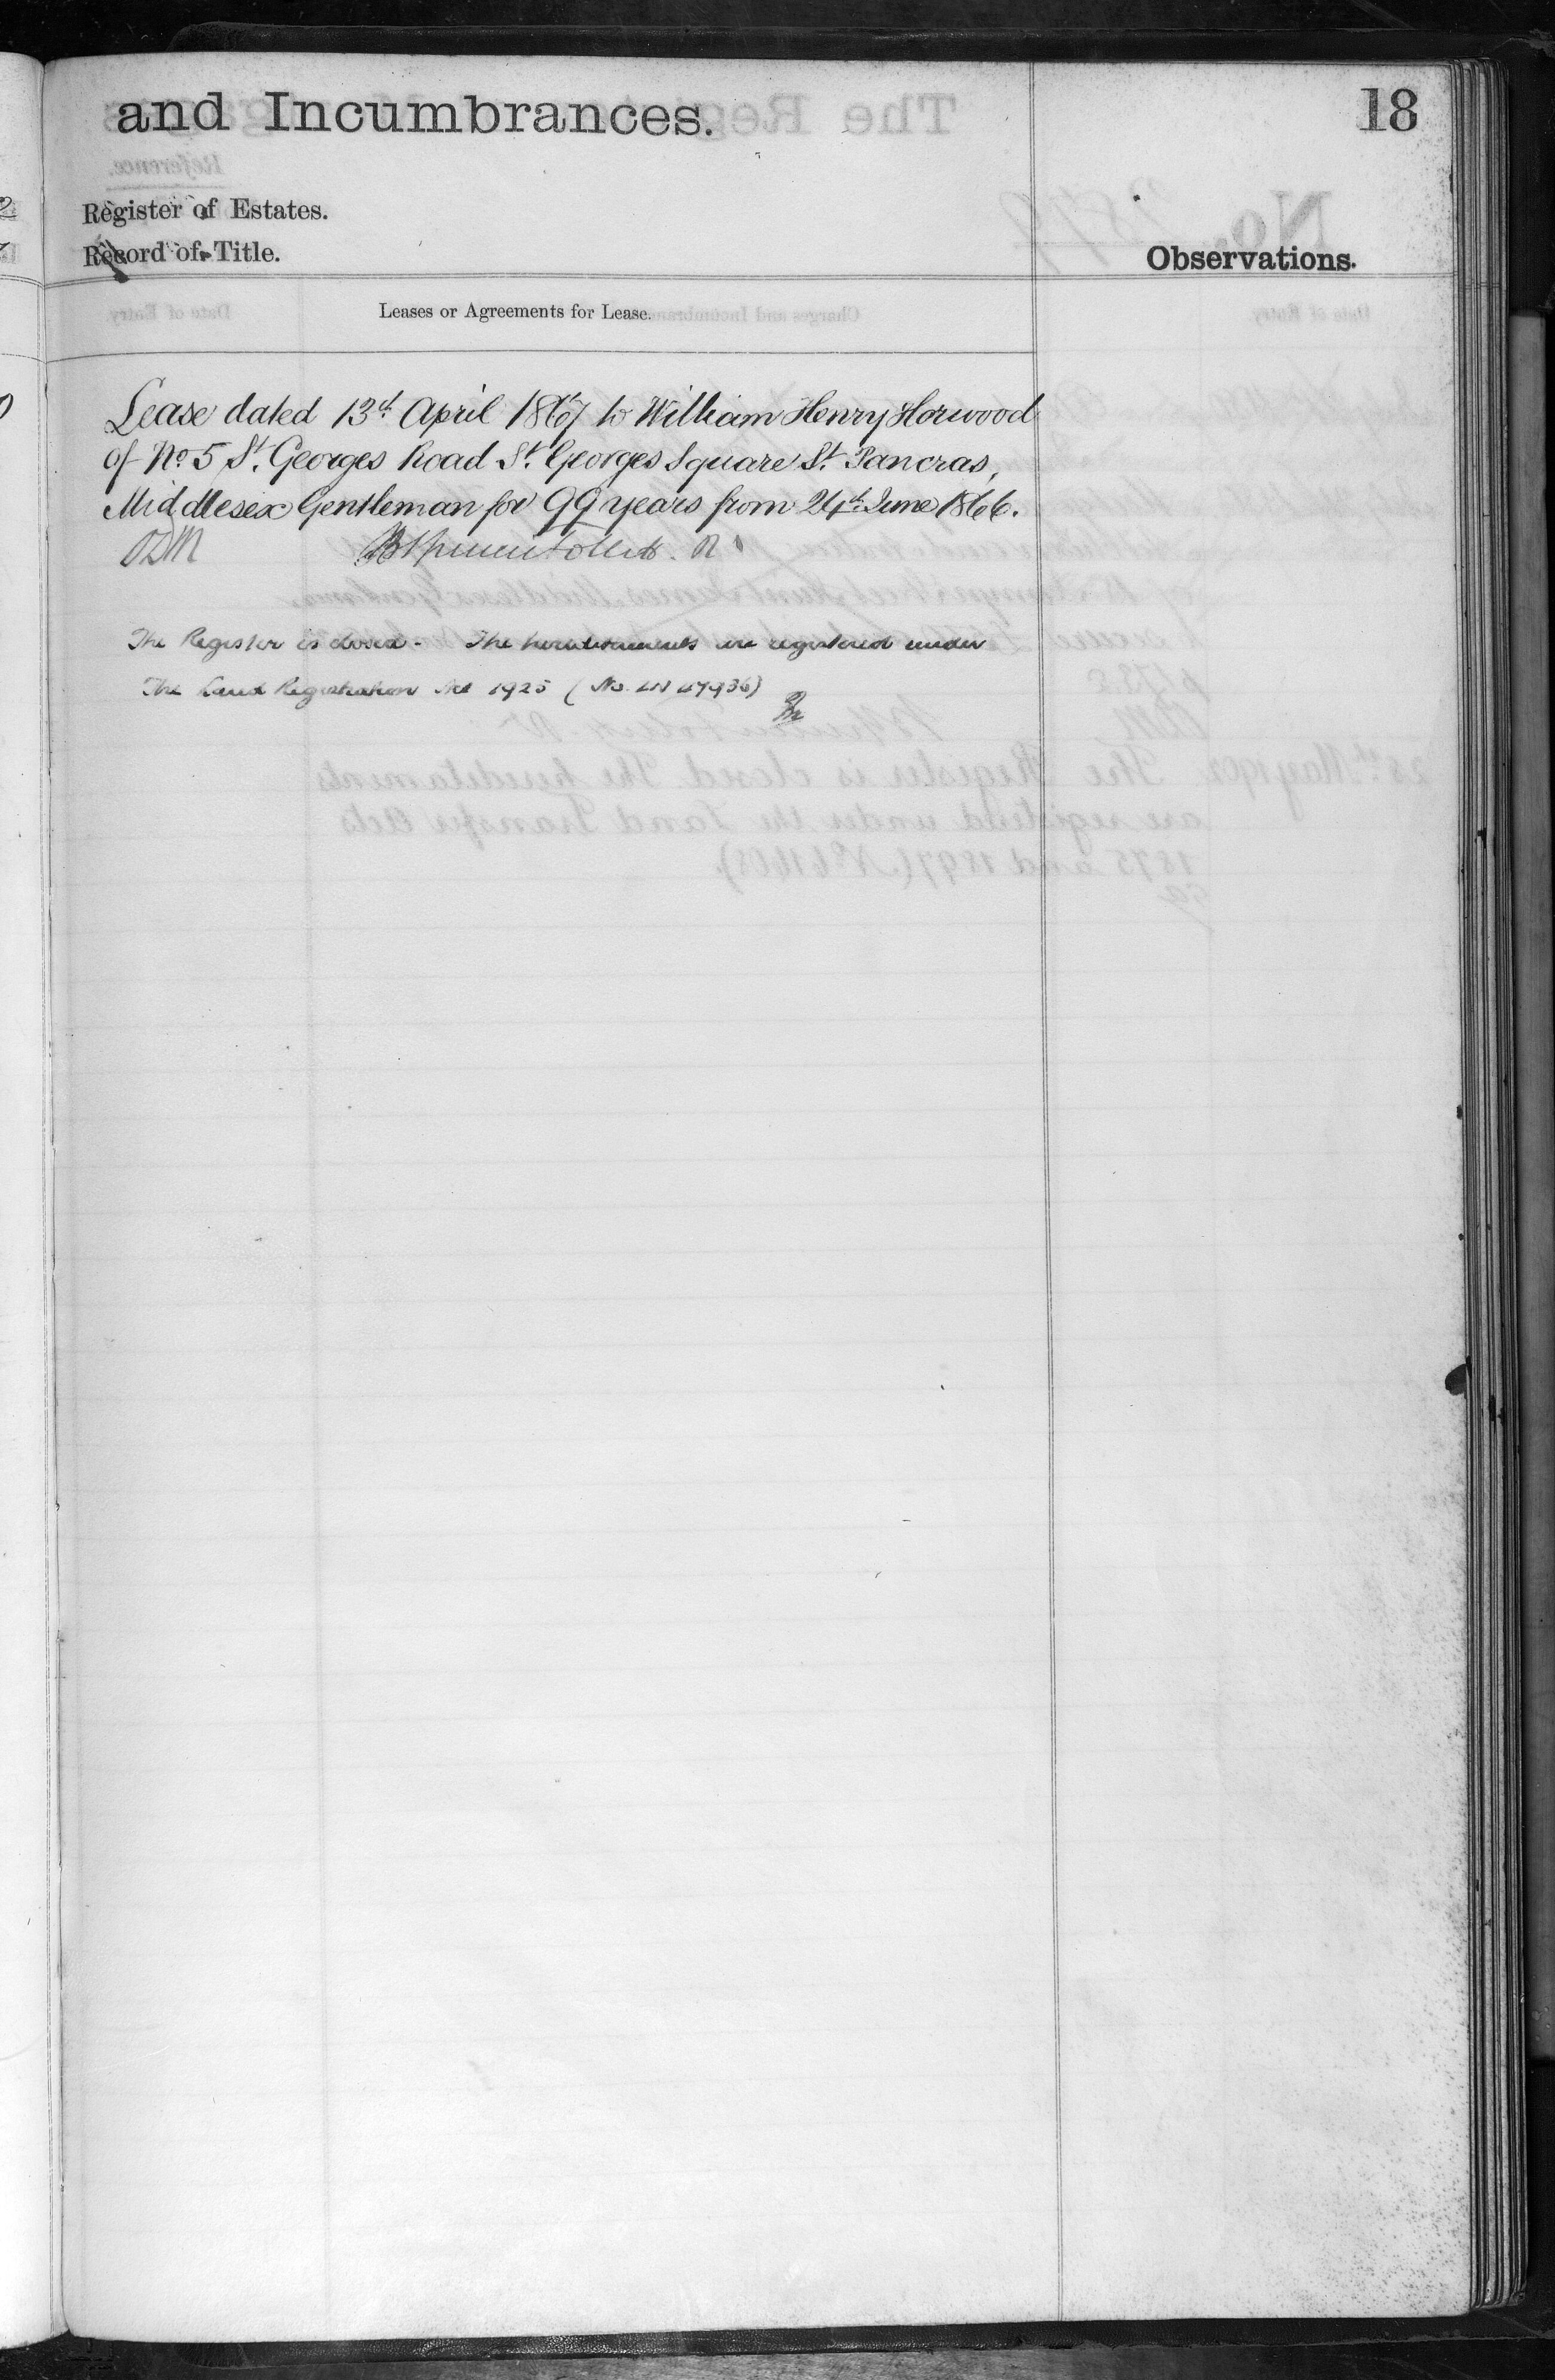 and Incumbrances.
18
Register of Estates.
Record of Title.
Observations.
Leases or Agreements for Lease.
Lease dated 13th April 1867 to William Henry Horwood
of No 5 St. Georges Road St. Georges Square St. Pancras,
Middlesex Gentleman for 99 years from 24th June 1866.
R
The Register is closed - The hereditaments are registered under
The Land Registration Act 1925 (No. LN 47936)